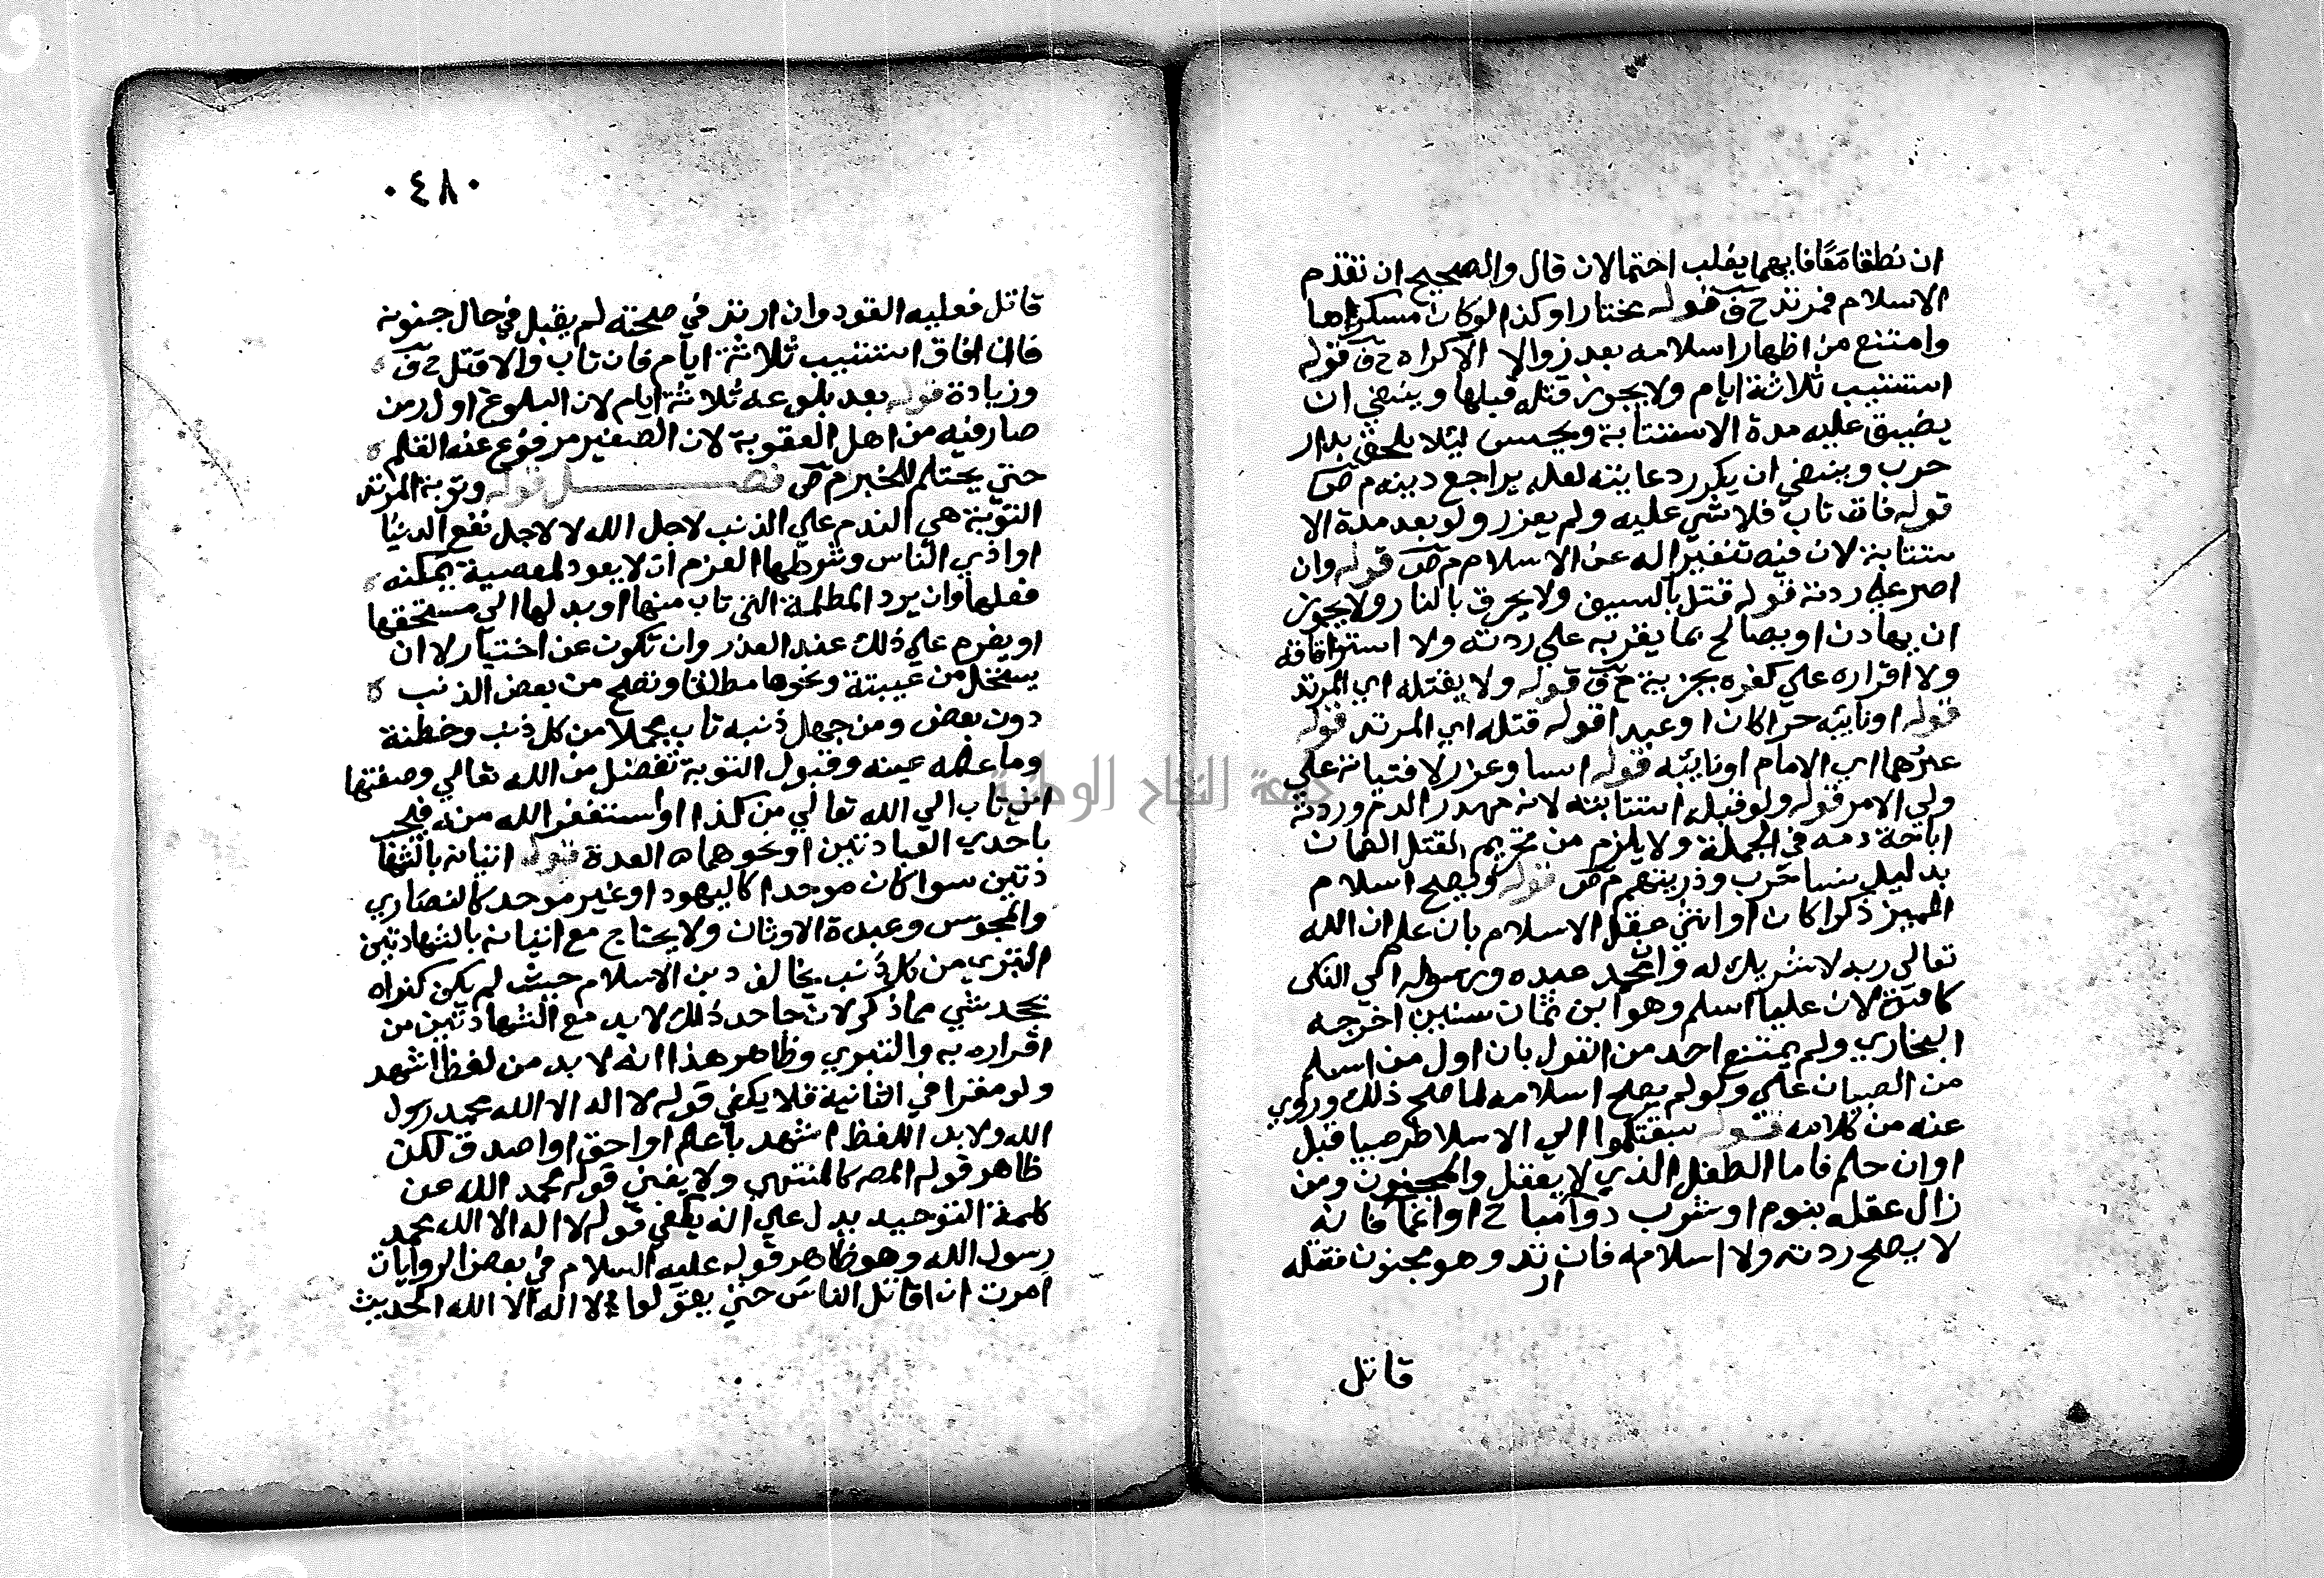 ان نطقا معًا فايهما يغلب احتمالان قال والصحيح ان تقدم
الاسلام فمرتد ح ق قوله مختارا وكذا لو كان مسكرا
وامتنع من اظهار اسلامه بعد زوال الاكراه ح ق قوله
استتيب ثلاثة ايام ولا يجوز قتله قبلها وينبغي ان
يضيق عليه مدة الاستتابة ويحبس ليلا يلحق بدار
حرب وينبغي ان يكرر دعايته لعله يراجع دينه م ص
قوله فان تاب فلا شي عليه ولم يعزر ولو بعد مدة الا
ستتابة لان فيه تنفيرا له عن الاسلام م ص قوله وان
اصر علي ردته قوله قتل بالسيف ولا يحرق بالنار ولا يجوز
ان يهادن او يصالح بما يقر به علي ردته ولا استرقاقه
ولا اقراره علي كفره بجزية ح ق قوله ولا يقتله اي المرتد
قوله او نايبه حرا كان او عبدا قوله قتله اي المرتد قوله
غيرهما اي الامام او نايبه قوله اسا وعزر لافتياته علي
ولي الامر قوله ولو قبل استتابته لانه مهدر الدم وردته
اباحة دمه في الجملة ولا يلزم من تحريم القتل الضمان
بدليل نسا حرب وذريتهم م ص قوله ويصح اسلام
المميز ذكرا كان او انثي عقل الاسلام بان علم ان الله
تعالي ربه لا شريك له وان محمد عبده ورسوله الي
لان عليا اسلم وهو ابن ثمان سنين اخرجه
البخاري ولم يمتنع احد من القول بان اول من اسلم
من الصبيان علي ولو لم يصح اسلامه لما صح ذلك وروي
عنه من كلامه قوله سبقتكموا الي الاسلام طر صبيا قبل
اوان حلم فاما الطفل الذي لا يعقل والمجنون ومن
زال عقله بنوم او شرب دوا مباح او اغما فانه
لا يصح ردته ولا اسلامه فان ارتد وهو مجنون فقتله
قاتل
٠٤٨٠
قاتل فعليه القود وان ارتد في صحته لم يقبل في حال جنونه
فان افاق استتيب ثلاثة ايام فان تاب والا قتل ح ق
وزيادة قوله بعد بلوغه ثلاثة ايام لان البلوغ اول زمن
صار فيه من اهل العقوبة لان الصغير مرفوع عنه القلم
حتي يحتلم للخبر م ص فصل قوله وتوبة المرتد
التوبة هي الندم علي الذنب لاجل الله لا لاجل نفع الدنيا
او اذي الناس وشرطها العزم ان لا يعود لمعصية يمكنه
فعلها وان يرد المظلمة التي تاب منها او بدلها الي مستحقها
او يغرم علي ذلك عند العذر وان تكون عن اختيار لا ان
يستحل من غيبتة ونحوها مطلقا وتصح من بعض الذنب
دون بعض ومن جهل ذنبه تاب مجملا من كل ذنب وخطئة
وما علمه عينه وقبول التوبة تفضل من الله تعالي وصفتها
اني تاب الي الله تعالي من كذا او استغفر الله منه فيجب
باحدي العبادتين او نحوهما ه العدة قوله اتيانه بالشها
دتين سوا كان موحدا كاليهود او غير موحد كالنصاري
والمجوس وعبدة الاوثان ولا يحتاج مع اتيانه بالشهادتين
التبري من كل ذنب يخالف دين الاسلام حيث لم يكن كفراه
بجحد شي مما ذكر لان جاحد ذلك لا بد مع الشهادتين من
اقراره به والتبري وظاهر هذا انه لا بد من لفظ اشهد
ولو مقرا في الثانية فلا يكفي قوله لا اله الا الله محمد رسول
الله ولا بد اللفظ اشهد باعلم او احق او اصدق لكن
ظاهر قوله المص كالمنتهي ولا يغني قوله محمد الله عن
كلمة التوحيد يدل علي انه يكفي قوله لا اله الا الله محمد
رسول الله وهو ظاهر قوله عليه السلام في بعض الروايات
امرت ان اقاتل الناس حتي يقولوا لا اله الا الله الحديث
جامعة النجاح الوطنية